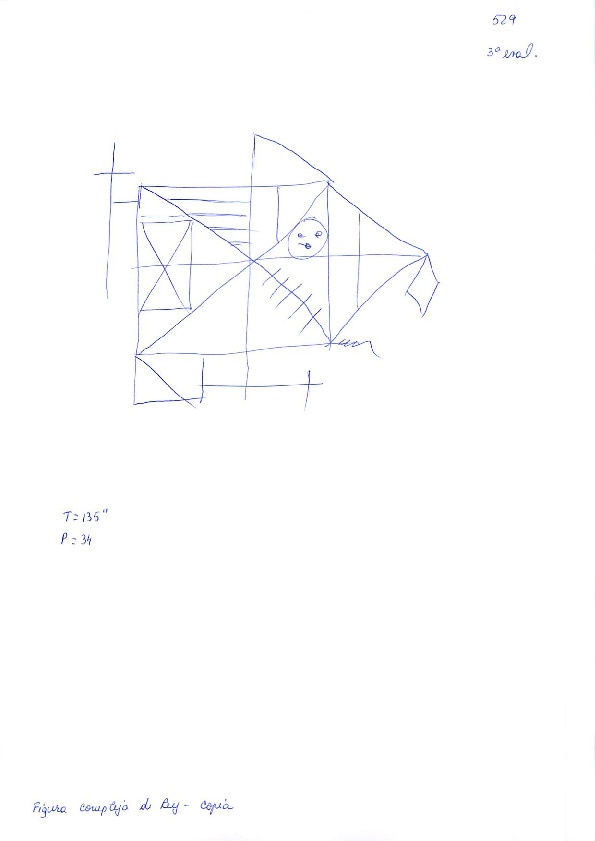 529
3ª eval.
T = 135"
P = 34
Figura compleja de Rey - copia